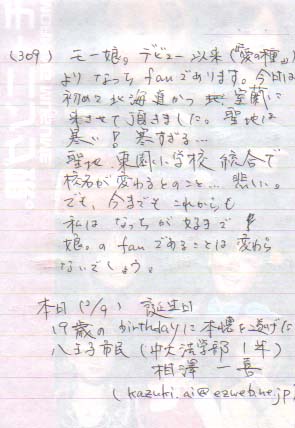 (309) モー娘。デビュー以来(『愛の種』)
よりなっち fanであります。今日は
初めて北海道かつ地 室蘭に
来させて頂きました。聖地は
寒い!寒すぎる…
聖地 東園小学校 統合で
校名が変わるとのこと… 悲しい。
でも、今までもこれからも
私はなっちが好きで
娘。の fanであることは変わら
ないでしょう。
本日(2/9) 誕生日
19歳の birthdayに本懐を遂げた
八王子市民(中大法学部 1年)
相澤 一喜
(kazuki.ai@ezweb.ne.jp)